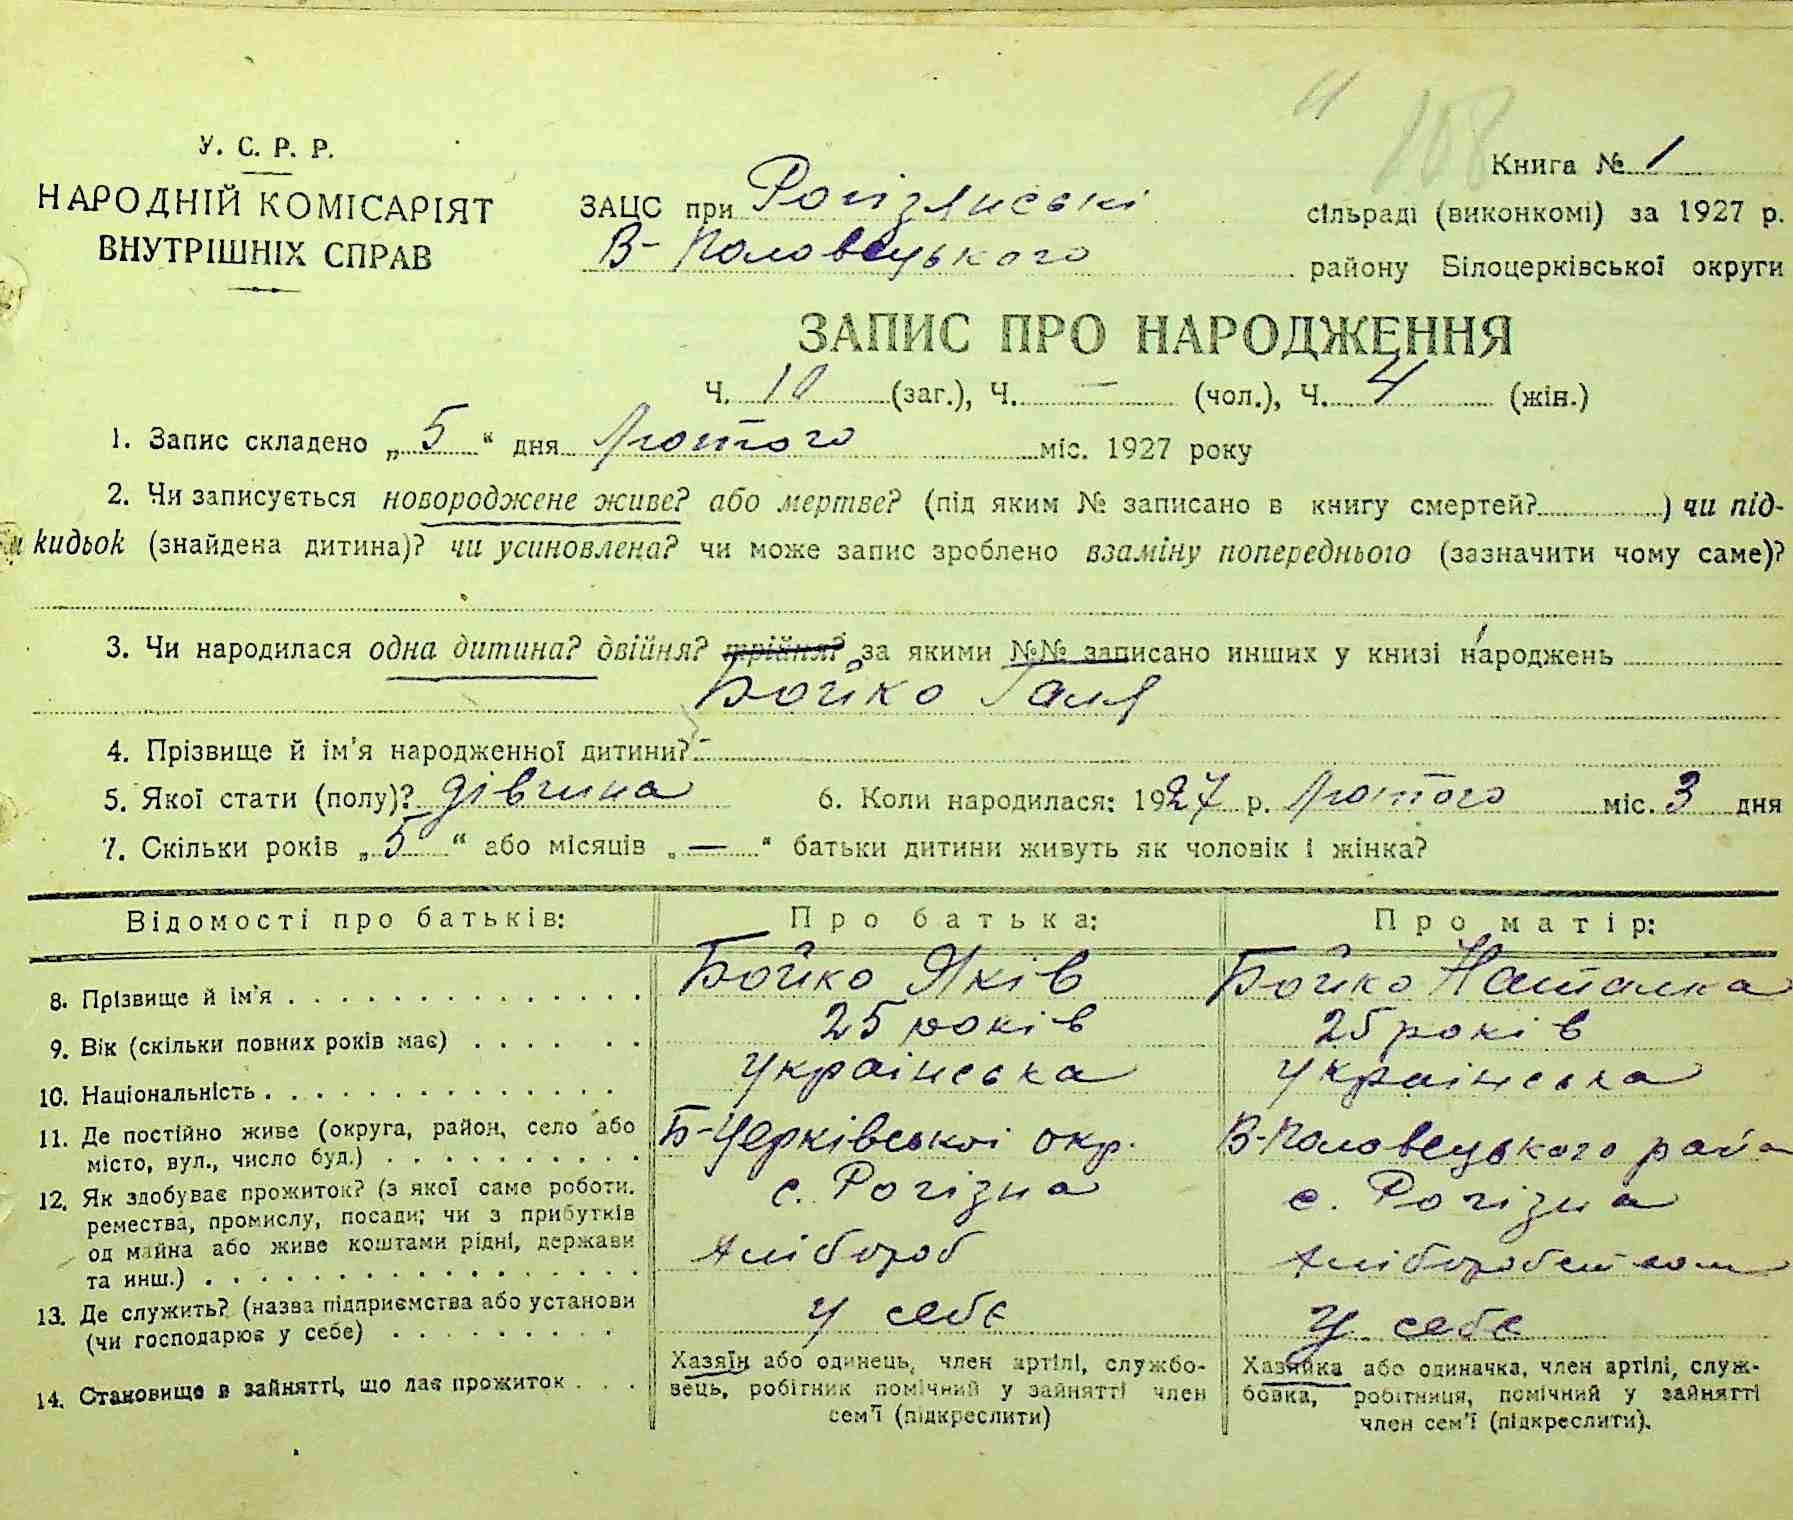 11 108
У. С. Р. Р.
НАРОДНІЙ КОМІСАРІЯТ
ВНУТРІШНІХ СПРАВ
Книга № 1
ЗАЦС при Рогізянські сільраді (виконкомі) за 1927 р.
В-Половецького району Білоцерківської округи
ЗАПИС ПРО НАРОДЖЕННЯ
Ч. 10 (заг.), Ч. — (чол.), Ч. 4 (жін.)
1. Запис складено „5“ дня Лютого міс. 1927 року
2. Чи записується новороджене живе? або мертве? (під яким № записано в книгу смертей? ) чи під-
кидьок (знайдена дитина)? чи усиновлена? чи може запис зроблено взаміну попереднього (зазначити чому саме)?
3. Чи народилася одна дитина? двійня? трійня? за якими №№ записано инших у книзі народжень
Бойко Галя
4. Прізвище й ім'я народженної дитини?
5. Якої стати (полу)? дівчина 6. Коли народилася: 1927 р. Лютого міс. 3 дня
7. Скільки років „5“ або місяців „—“ батьки дитини живуть як чоловік і жінка?
Відомості про батьків: Про батька: Про матір:
8. Прізвище й ім'я Бойко Яків Бойко Наталка
9. Вік (скільки повних років має) 25 років 25 років
10. Національність українська українська
11. Де постійно живе (округа, район, село або Б-Церківської окр. В-Половецького
місто, вул., число буд.)
12. Як здобуває прожиток? (з якої саме роботи, с. Рогізна с. Рогізна
ремества, промислу, посади; чи з прибутків
од майна або живе коштами рідні, держави хлібороб
та инш.)
13. Де служить? (назва підприємства або установи у себе у себе
(чи господарює у себе)
14. Становище в зайнятті, що дає прожиток
Хазяїн або одинець, член артілі, службо-
вець, робітник помічний у зайнятті член
сем'ї (підкреслити)
Хазяйка або одиначка, член артілі, служ-
бовка, робітниця, помічний у зайнятті
член сем'ї (підкреслити).